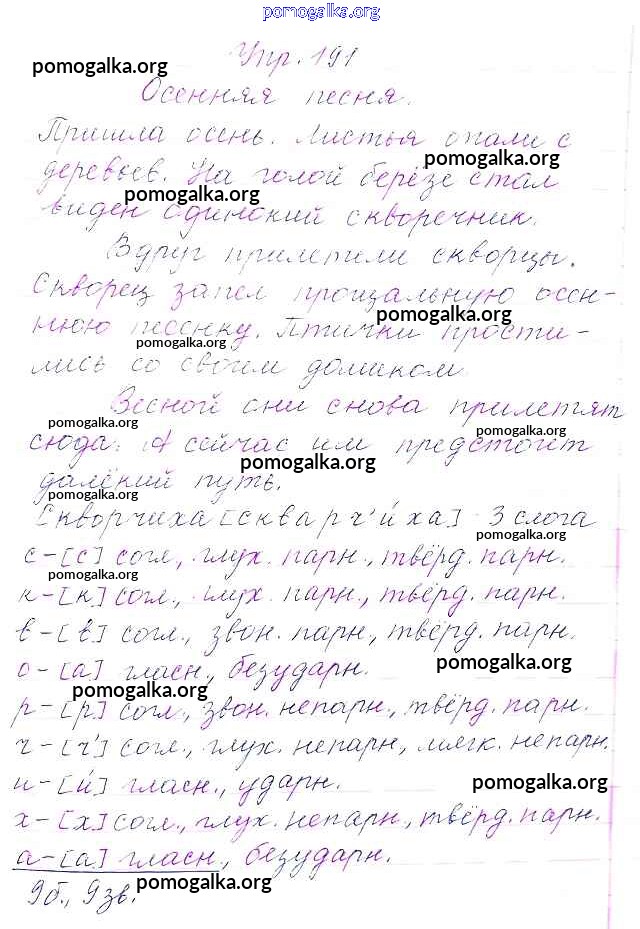 pomogalka.org
Упр. 191
pomogalka.org
Осенняя песня.
Пришла осень. Листья опали с
pomogalka.org
деревьев. На голой берёзе стал
pomogalka.org
виден одинокий скворечник.
Вдруг прилетели скворцы.
Скворец запел прощальную осен-
pomogalka.org
нюю песенку. Птички прости-
pomogalka.org
лись со своим домиком
Весной они снова прилетят
pomogalka.org
pomogalka.org
сюда. А сейчас им предстоит
pomogalka.org
далёкий путь.
pomogalka.org
Скворчиха [скварч'и́ха] - 3 слога
pomogalka.org
с - [с] согл., глух. парн., твёрд. парн.
pomogalka.org
к - [к] согл., глух. парн., твёрд. парн.
в - [в] согл., звон. парн., твёрд. парн.
pomogalka.org
о - [а] гласн., безударн.
pomogalka.org
р - [р] согл., звон. непарн., твёрд. парн.
ч - [ч'] согл., глух. непарн., мягк. непарн.
и - [и́] гласн., ударн.
pomogalka.org
х - [х] согл., глух. непарн., твёрд. парн.
а - [а] гласн., безударн.
pomogalka.org
9б., 9зв.